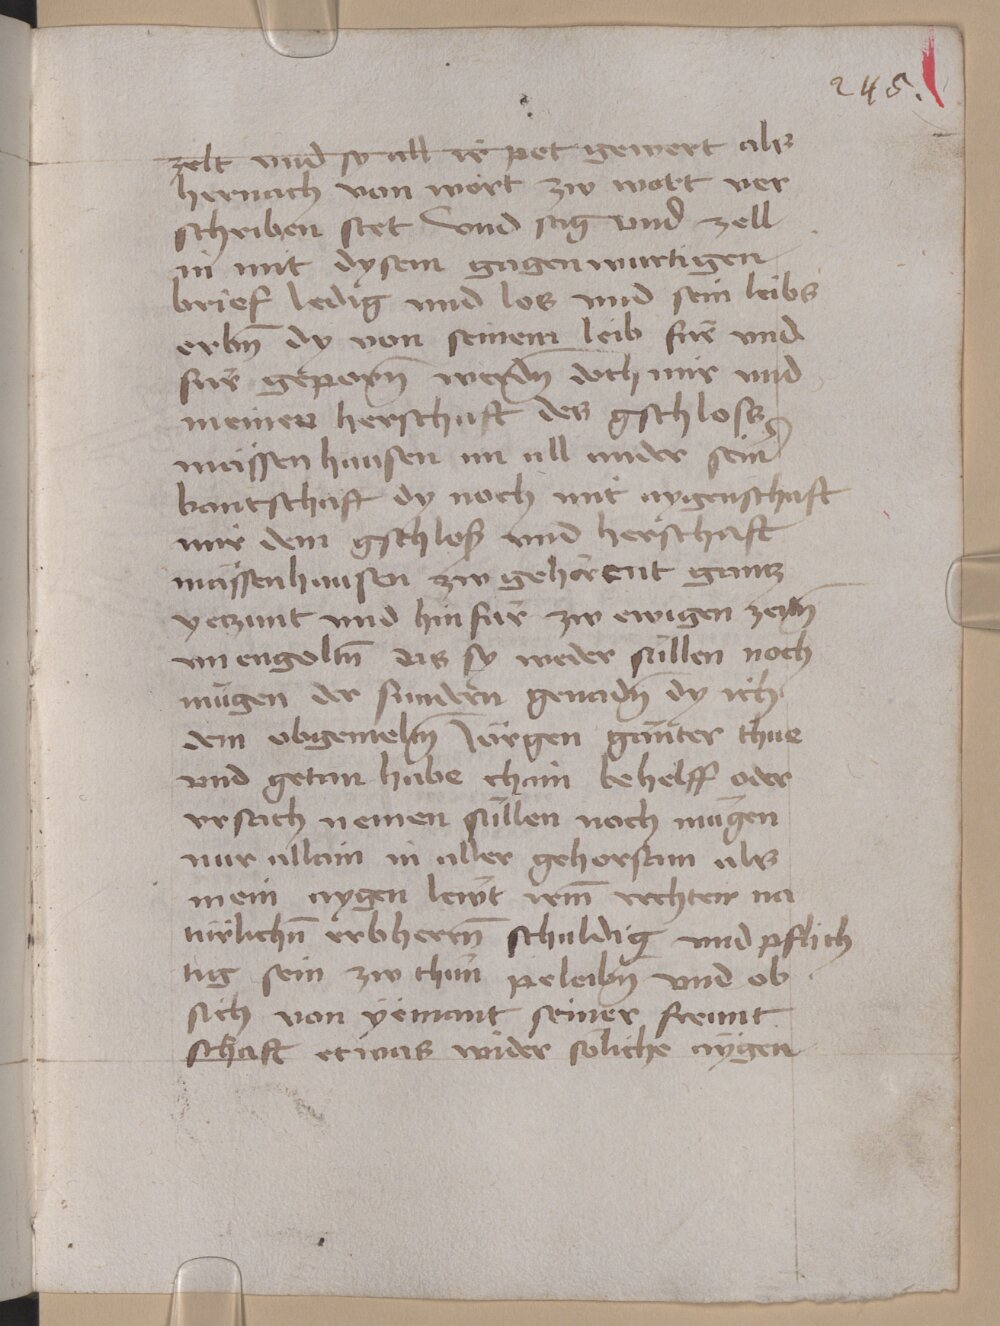 245.
zelt und sy all ir pet gewert als
hernach von wort zw wort ver
schriben stet Und sag und zell
in mit dysem gagenwurtigen
brief ledig und los und sein leibs
erbn̄ dy von seinem leib für und
für geporn̄ werdn̄ doch mir und
meiner herschaft des gschloss
mässenhausen an all ander sein
bantschaft dy noch mit aygenschaft
mir dem gschloss und herschaft
mässenhausen zw gehörent gantz
yetzunt und hinfür zw ewigen zeitn̄
unengoltn̄ das sy weder süllen noch
mügen der sundern genadn̄ dy ich
dem obgemeltn̄ Jörgen gänter thue
und getan habe chain behelff oder
ursach nemen süllen noch mügen
nur allain in aller gehorsam als
mein aygen lewt irm̄ rechten na
türlichn̄ erbherrn̄ schuldig und pflich
tig sein zw thun peleibn̄ und ob
sich von yemant seiner freunt
schaft etwas wider soliche aygen